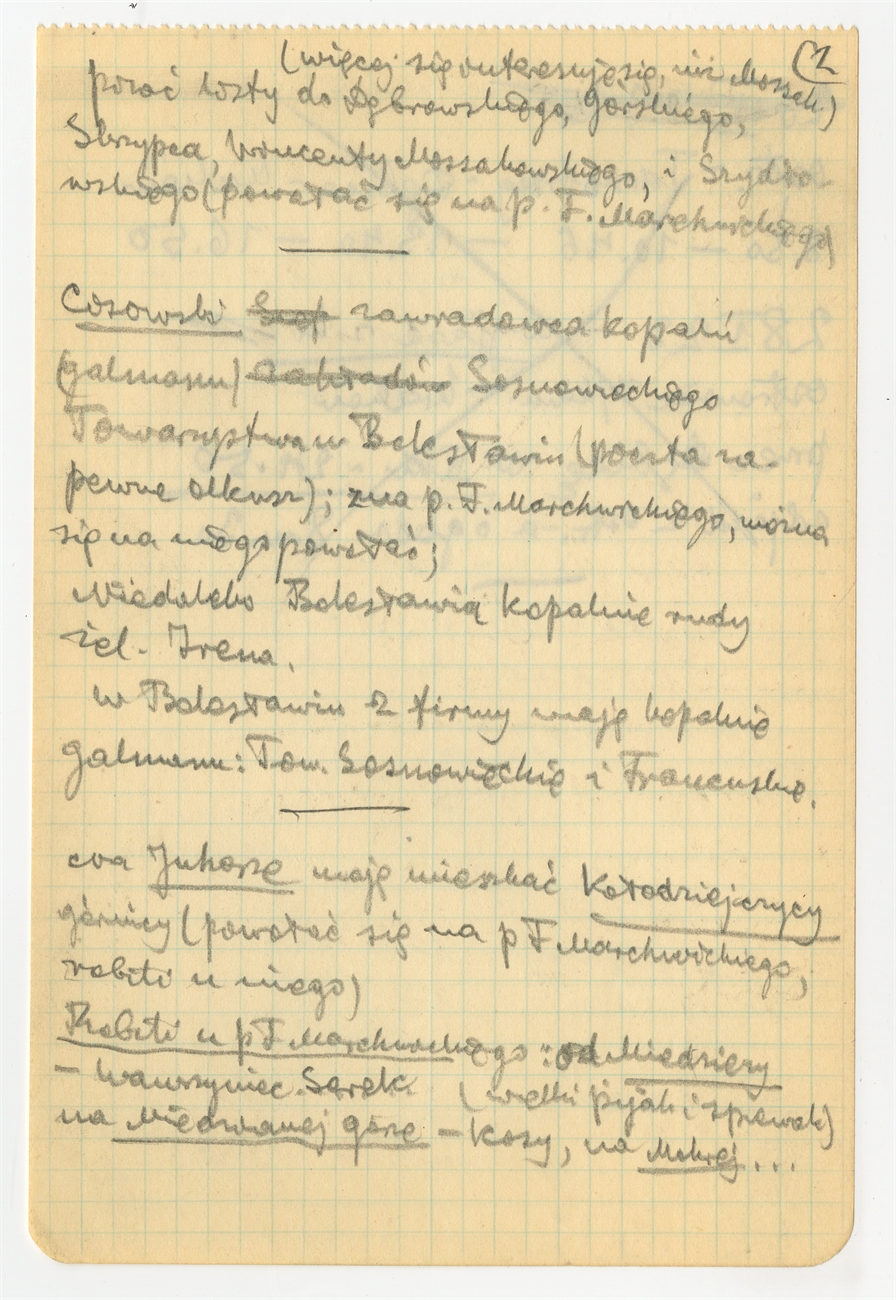 (1
(więcej się interesuje się, niż Mossak.)
pisać listy do Dąbrowskiego, Górskiego,
Skrzypca, Wincenty Mossakowskiego, i Szydło-
wskiego (powołać się na p. F. Marchwickiego)
Cisowski zawiadowca kopalń
(galmanu) Sosnowieckiego
Towarzystwa w Bolesławiu (poczta za-
pewne Olkusz); zna p. F. Marchwickiego, można
się na niego powołać;
Niedaleko Bolesławia kopalnie rudy
żel. Irena.
w Bolesławiu 2 firmy mają kopalnię
galmanu: Tow. Sosnowieckie i Francuskie.
Juhasze mają mieszkać Kołodziejczycy
górnicy (powołać się na p F Marchwickiego,
robili u niego)
Robili u p F Marchwickiego: od Miedzierzy
– Wawrzyniec Serek (wielki pijak i śpiewak)
na Miedzianej górze – Kosy, na Mokrej...